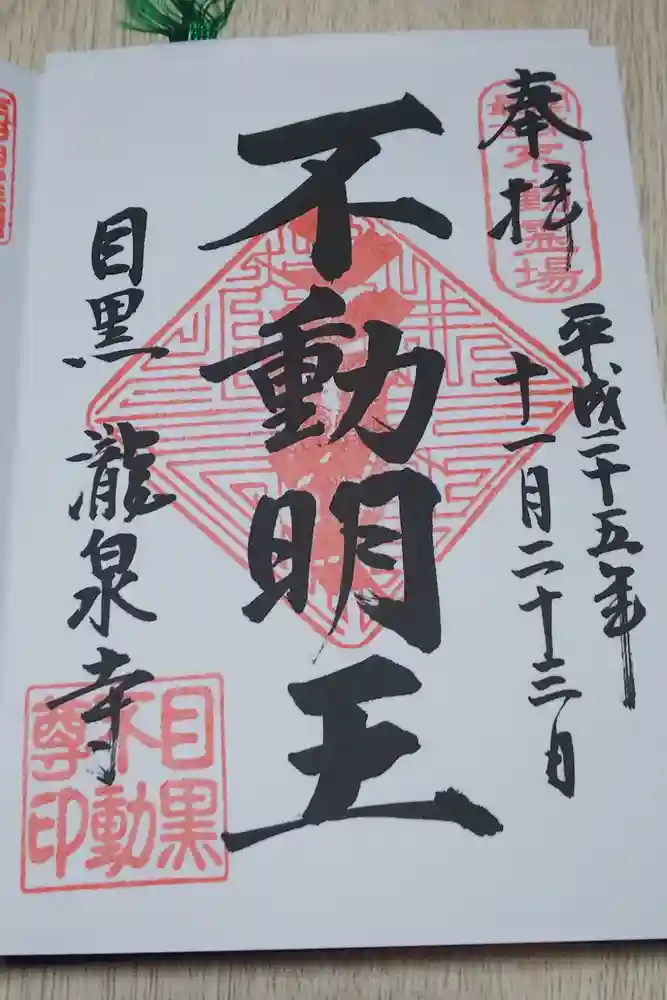 奉拝
平成二十五年
十一月二十三日
不動明王
目黒 瀧泉寺
不動霊場
目黒
不動
尊印